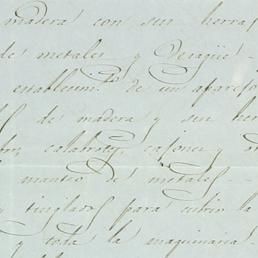 madera con sus herra
de metales y Desagüe
establecim.to de un aparejo
de madera y sus her
calabrotes, cajones y ot
manteo de metales
y tinglados para cubrir la
y toda la maquinaria